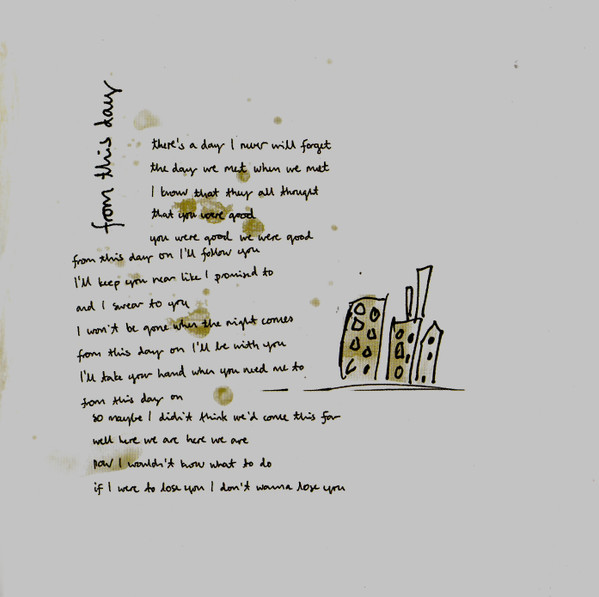 from this day
there's a day I never will forget
the day we met when we met
I know that they all thought
that you were good
you were good we were good
from this day on I'll follow you
I'll keep you near like I promised to
and I swear to you
I won't be gone when the night comes
from this day on I'll be with you
I'll take your hand when you need me to
from this day on
so maybe I didn't think we'd come this far
well here we are here we are
now I wouldn't know what to do
if I were to lose you I don't wanna lose you